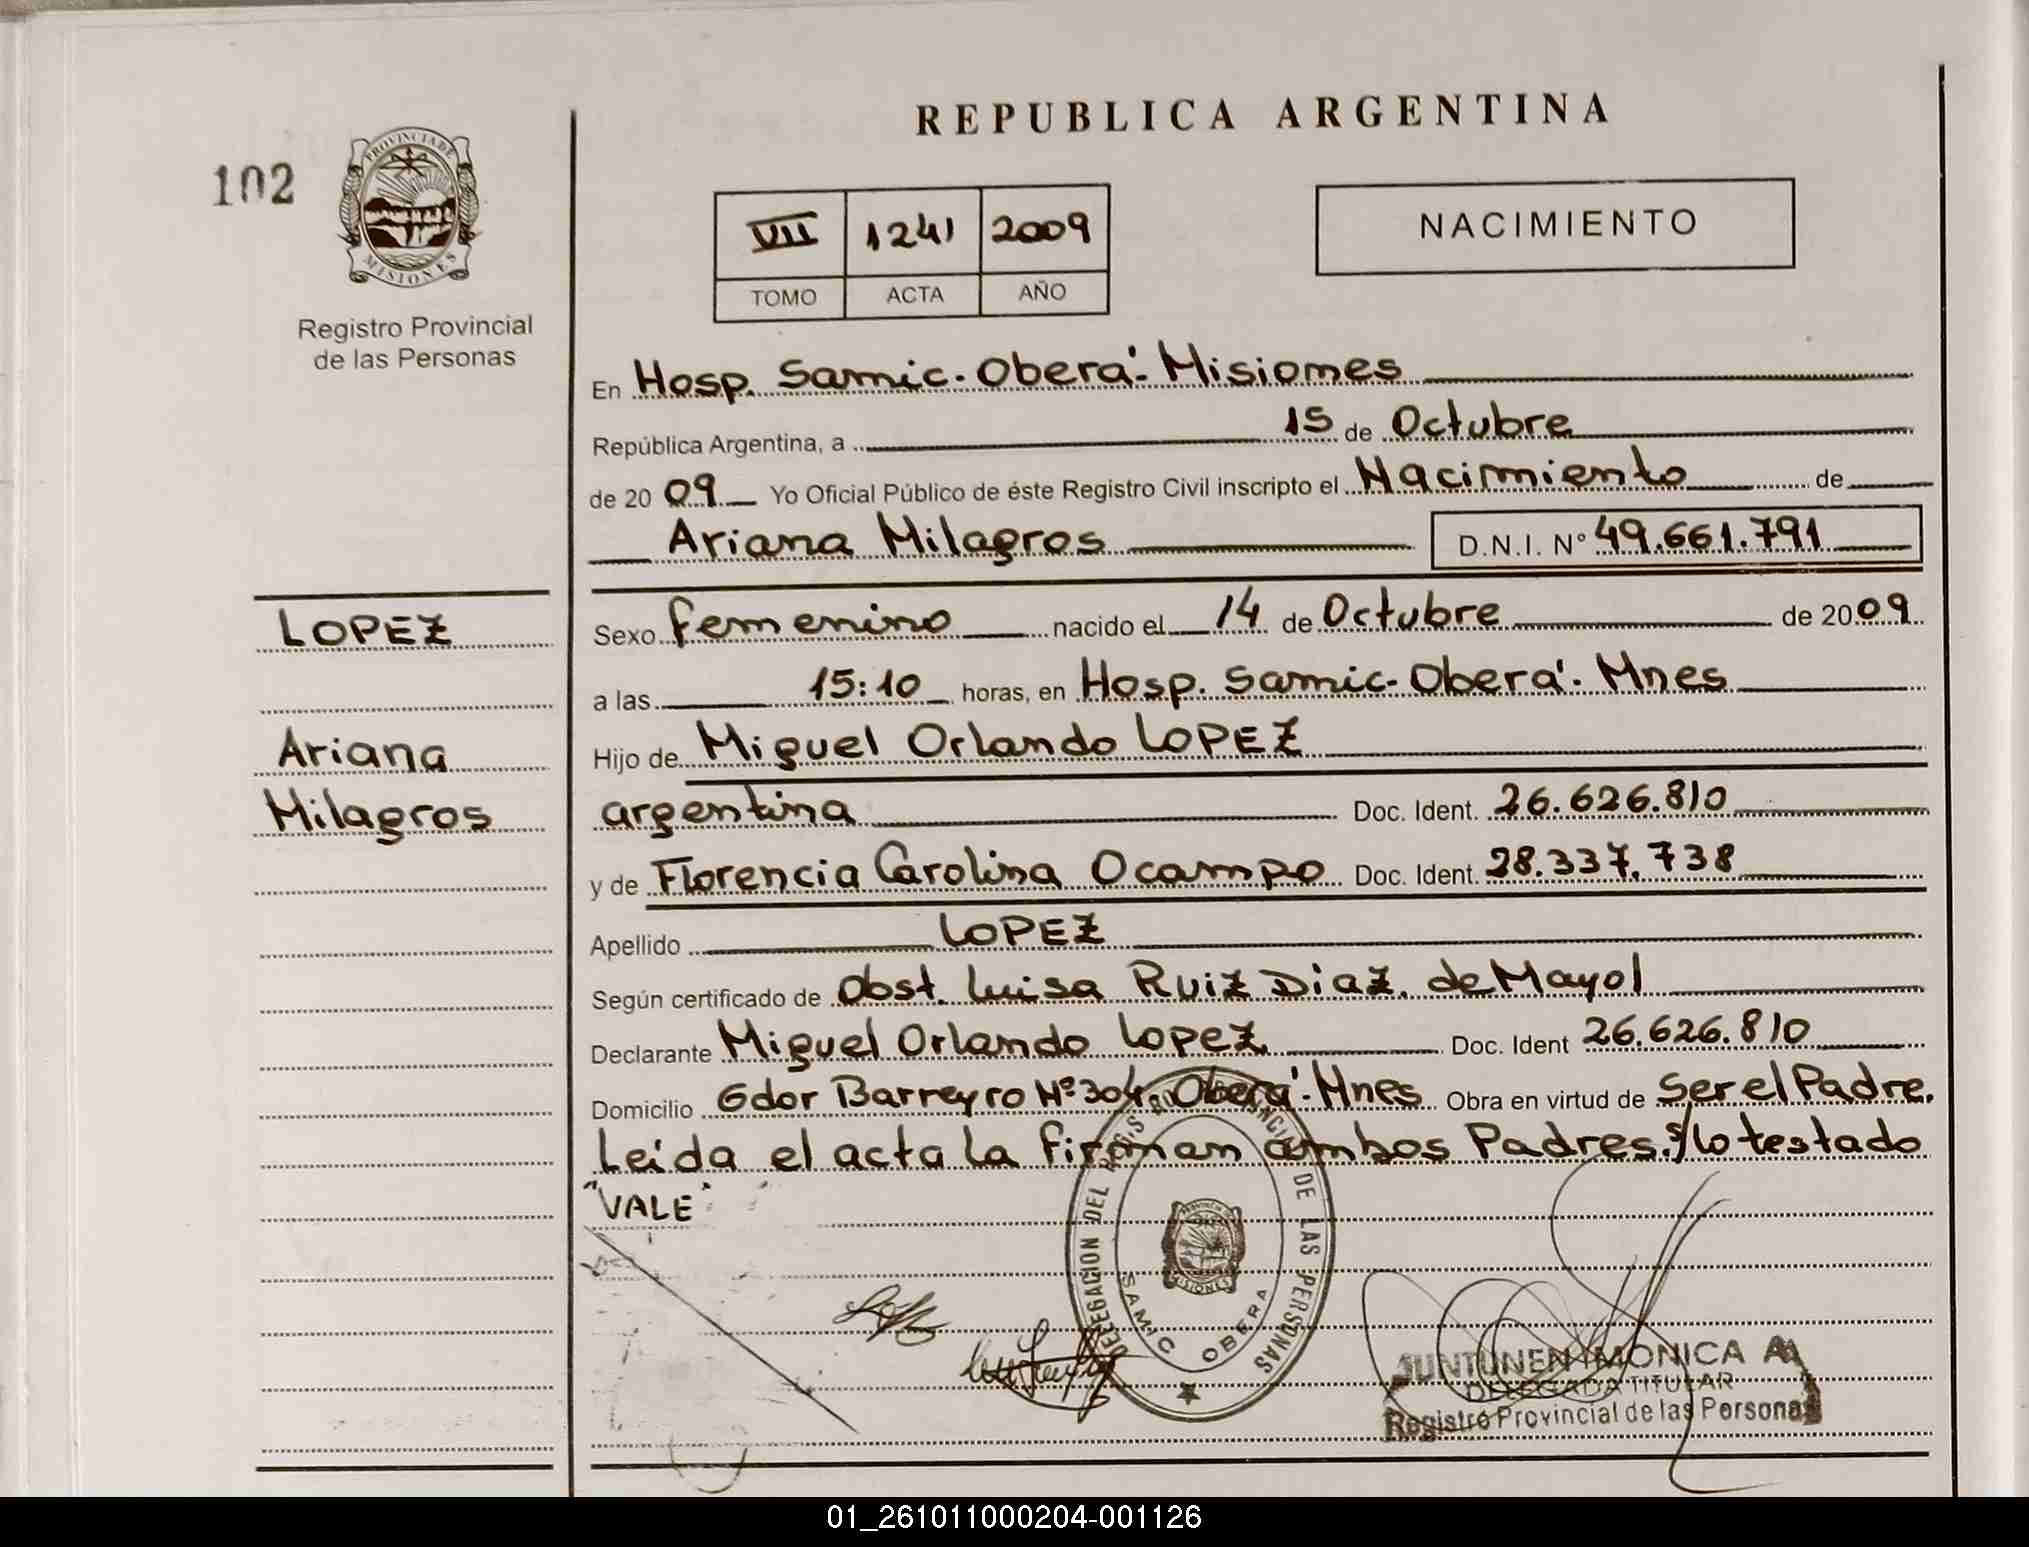 REPUBLICA ARGENTINA
102
PROVINCIA DE
MISIONES
Registro Provincial
de las Personas
VII 1241 2009
TOMO ACTA AÑO
NACIMIENTO
En Hosp. Samic. Oberá. Misiones
República Argentina, a 15 de Octubre
de 20 09 Yo Oficial Público de éste Registro Civil inscripto el Nacimiento de
Ariana Milagros D.N.I. N° 49.661.791
LOPEZ
Ariana
Milagros
Sexo femenino nacido el 14 de Octubre de 20 09
a las 15:10 horas, en Hosp. Samic. Oberá. Mnes
Hijo de Miguel Orlando LOPEZ
argentina Doc. Ident. 26.626.810
y de Florencia Carolina Ocampo Doc. Ident. 28.337.738
Apellido LOPEZ
Según certificado de Obst. Luisa Ruiz Diaz. de Mayol
Declarante Miguel Orlando Lopez Doc. Ident 26.626.810
Domicilio Gdor Barreyro Nº 304. Oberá. Mnes Obra en virtud de Ser el Padre.
Leída el acta la firman ambos Padres. s/lo testado
"VALE"
DELEGACION DEL REG. DE LAS PERSONAS
SAMIC OBERA
MISIONES
JUNTUNEN MONICA A
DELEGADA TITULAR
Registro Provincial de las Personas
01_261011000204-001126